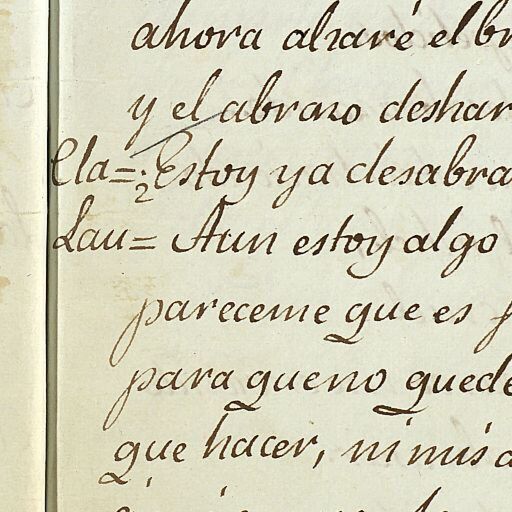 ahora alzaré el br
y el abrazo deshar
Cla=. Estoy ya desabra
2
Lau= Aun estoy algo
pareceme que es
para que no quede
que hacer, ni mis